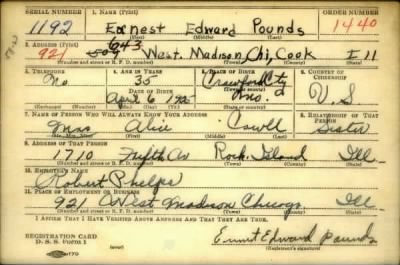 SERIAL NUMBER 1. NAME (Print) ORDER NUMBER
1192 Earnest Edward Pounds 1440
(First) (Middle) (Last)
2. ADDRESS (Print) 643
921 West. Madison Chi, Cook Ill
(Number and street or R. F. D. number) (Town) (County) (State)
3. TELEPHONE 4. AGE IN YEARS 5. PLACE OF BIRTH 6. COUNTRY OF CITIZENSHIP
No 35 Crawford Cty
DATE OF BIRTH (Town or county)
April 6 1905 Mo. U. S
(Mo.) (Day) (Yr.) (State or country)
7. NAME OF PERSON WHO WILL ALWAYS KNOW YOUR ADDRESS 8. RELATIONSHIP OF THAT PERSON
Mrs Alice Sister
(Mr., Mrs., Miss) (First) (Middle) (Last)
9. ADDRESS OF THAT PERSON
1710 Fifth Av Rock Island Ill
(Number and street or R. F. D. number) (Town) (County) (State)
10. EMPLOYER'S NAME
Robert Phelps
11. PLACE OF EMPLOYMENT OR BUSINESS
921 West Madison Chicago Ill
(Number and street or R. F. D. number) (Town) (County) (State)
I AFFIRM THAT I HAVE VERIFIED ABOVE ANSWERS AND THAT THEY ARE TRUE.
REGISTRATION CARD
D. S. S. Form 1 Ernest Edward Pounds
(Registrant's signature)